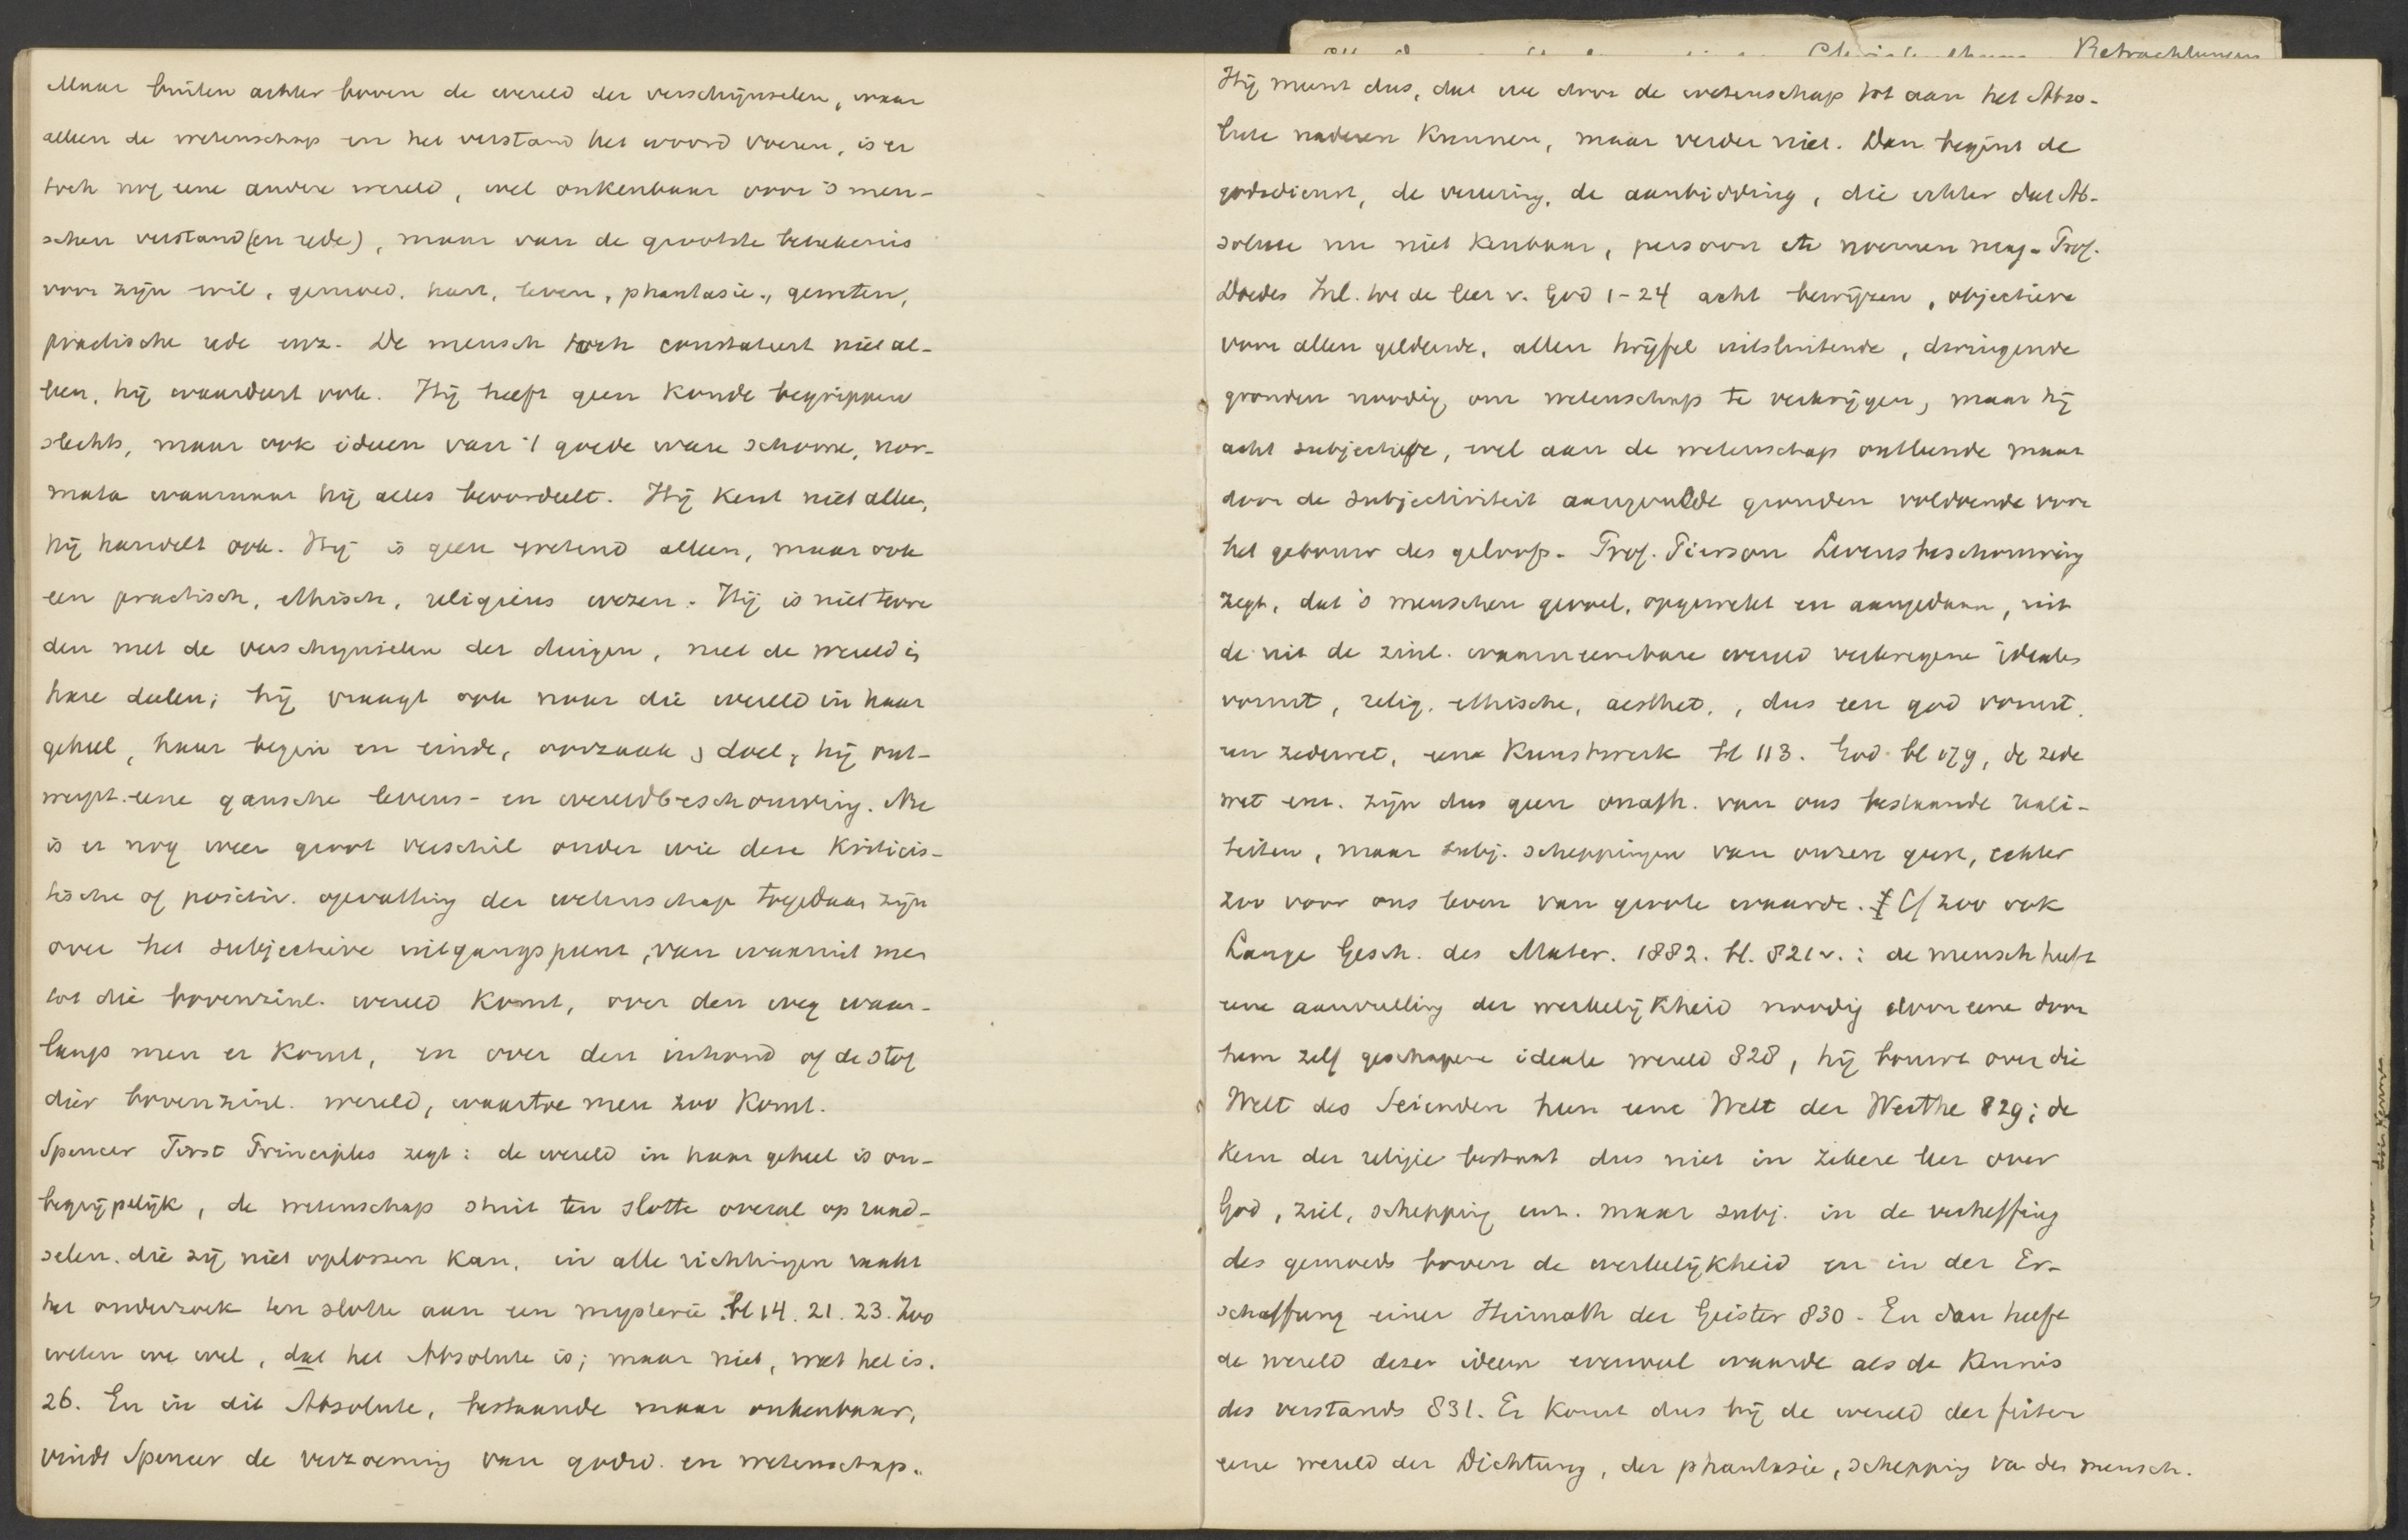 Maar buiten achter boven de wereld der verschijnselen, waar
alleen de wetenschap en het verstand het woord voeren, is er
toch nog eene andere wereld, wel onkenbaar voor 's men-
schen verstand (en rede), maar van de grootste beteekenis
voor zijn wil, gemoed, hart, leven, phantasie, geweten,
practische rede enz. De mensch toch constateert niet al-
leen, hij waardeert ook. Hij heeft geen koude begrippen
slechts, maar ook ideeen van 't goede ware schoone, nor-
mata waarnaar hij alles beoordeelt. Hij kent niet alleen,
hij handelt ook. Hij is geen wetend alleen, maar ook
een practisch, ethisch, religieus wezen. Hij is niet tevre
den met de verschijnselen der dingen, met de wereld in
hare deelen; hij vraagt ook naar die wereld in haar
geheel, haar begin en einde, oorzaak, doel, hij ont-
werpt eene gansche levens- en wereldbeschouwing. Nu
is er nog weer groot verschil onder wie deze kriticis-
tische of positiv. opvatting der wetenschap toegedaan zijn
over het subjectieve uitgangspunt, van waaruit men
tot die bovenzinl. wereld komt, over den weg waar-
langs men er komt, en over den inhoud of de stof
dier bovenzinl. wereld, waartoe men zoo komt.
Spencer First Principles zegt: de wereld in haar geheel is on-
begrijpelijk, de wetenschap stuit ten slotte overal op raad-
selen, die zij niet oplossen kan, in alle richtingen raakt
het onderzoek ten slotte aan een mysterie. bl 14. 21. 23. Zoo
weten we wel, dat het Absolute is; maar niet, wat het is.
26. En in dit Absolute, bestaande maar onkenbaar,
vindt Spencer de verzoening van godsd. en wetenschap.
Betrachtungen
Hij meent dus, dat we door de wetenschap tot aan het Abso-
lute naderen kunnen, maar verder niet. Dan begint de
godsdienst, de vereering, de aanbidding, die echter dat Ab-
solute nu niet kenbaar, persoon etc noemen mag. Prof.
Doedes Inl. tot de leer v. God 1-24 acht bewijzen, objectieve
voor allen geldende, allen twijfel uitsluitende, dringende
gronden noodig om wetenschap te verkrijgen, maar hij
acht subjectieve, wel aan de wetenschap ontleende maar
door de subjectiviteit aangevulde gronden voldoende voor
het gebouw des geloofs. Prof. Pierson Levensbeschouwing
zegt, dat 's menschen gevoel, opgewekt en aangedaan, uit
de uit de zinl. waarneembare wereld verkregene ideales
vormt, relig. ethische, aesthet., dus een god vormt,
een zedewet, een kunstwerk bl 113. God bl 079, de zede
wet enz. zijn dus geen onafh. van ons bestaande reali-
teiten, maar subj. scheppingen van onzen geest, echter
zoo voor ons leven van groote waarde. Cf zoo ook
Lange Gesch. des Mater. 1882. bl. 821 v.: de mensch heeft
eene aanvulling der werkelijkheid noodig door eene door
hem zelf geschapene ideale wereld 828, hij bouwt over die
Welt des Seienden hun eene Welt der Werthe 829; de
kern der religie bestaat dus niet in zekere leer over
God, ziel, schepping enz. maar subj. in de verheffing
des gemoeds boven de werkelijkheid en in der Er-
schaffung einer Heimath der Geister 830. En dan heeft
de wereld dezer ideen evenveel waarde als de kennis
des verstands 831. Er komt dus bij de wereld der feiten
eene wereld der Dichtung, der phantasie, schepping va den mensch.